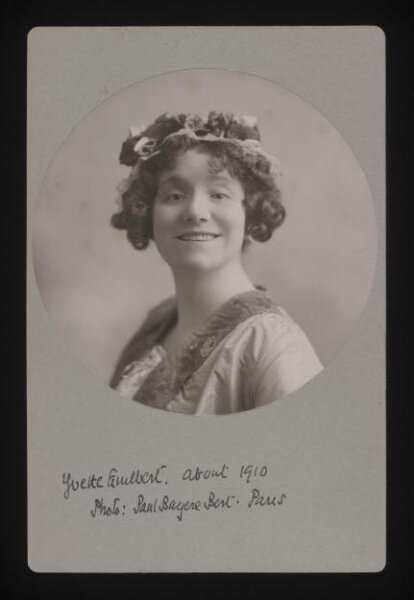 Yvette Guilbert. about 1910
Photo: Paul Bert. Paris